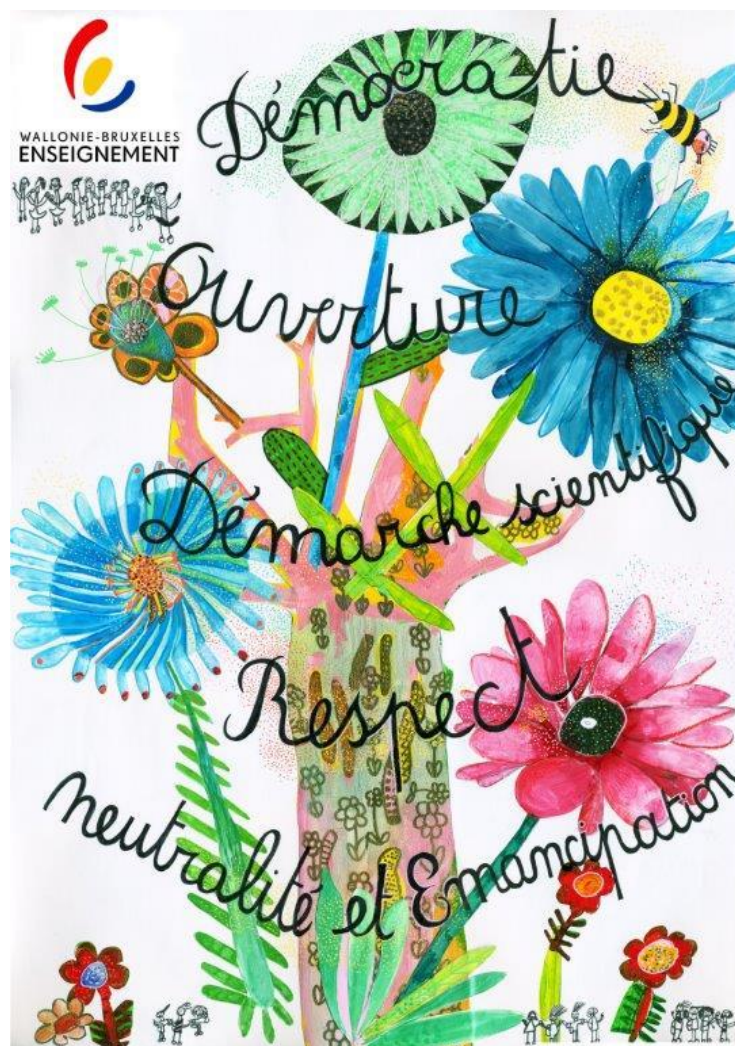 WALLONIE-BRUXELLES
ENSEIGNEMENT
Démocratie
Ouverture
Démarche scientifique
Respect
neutralité et Emancipation